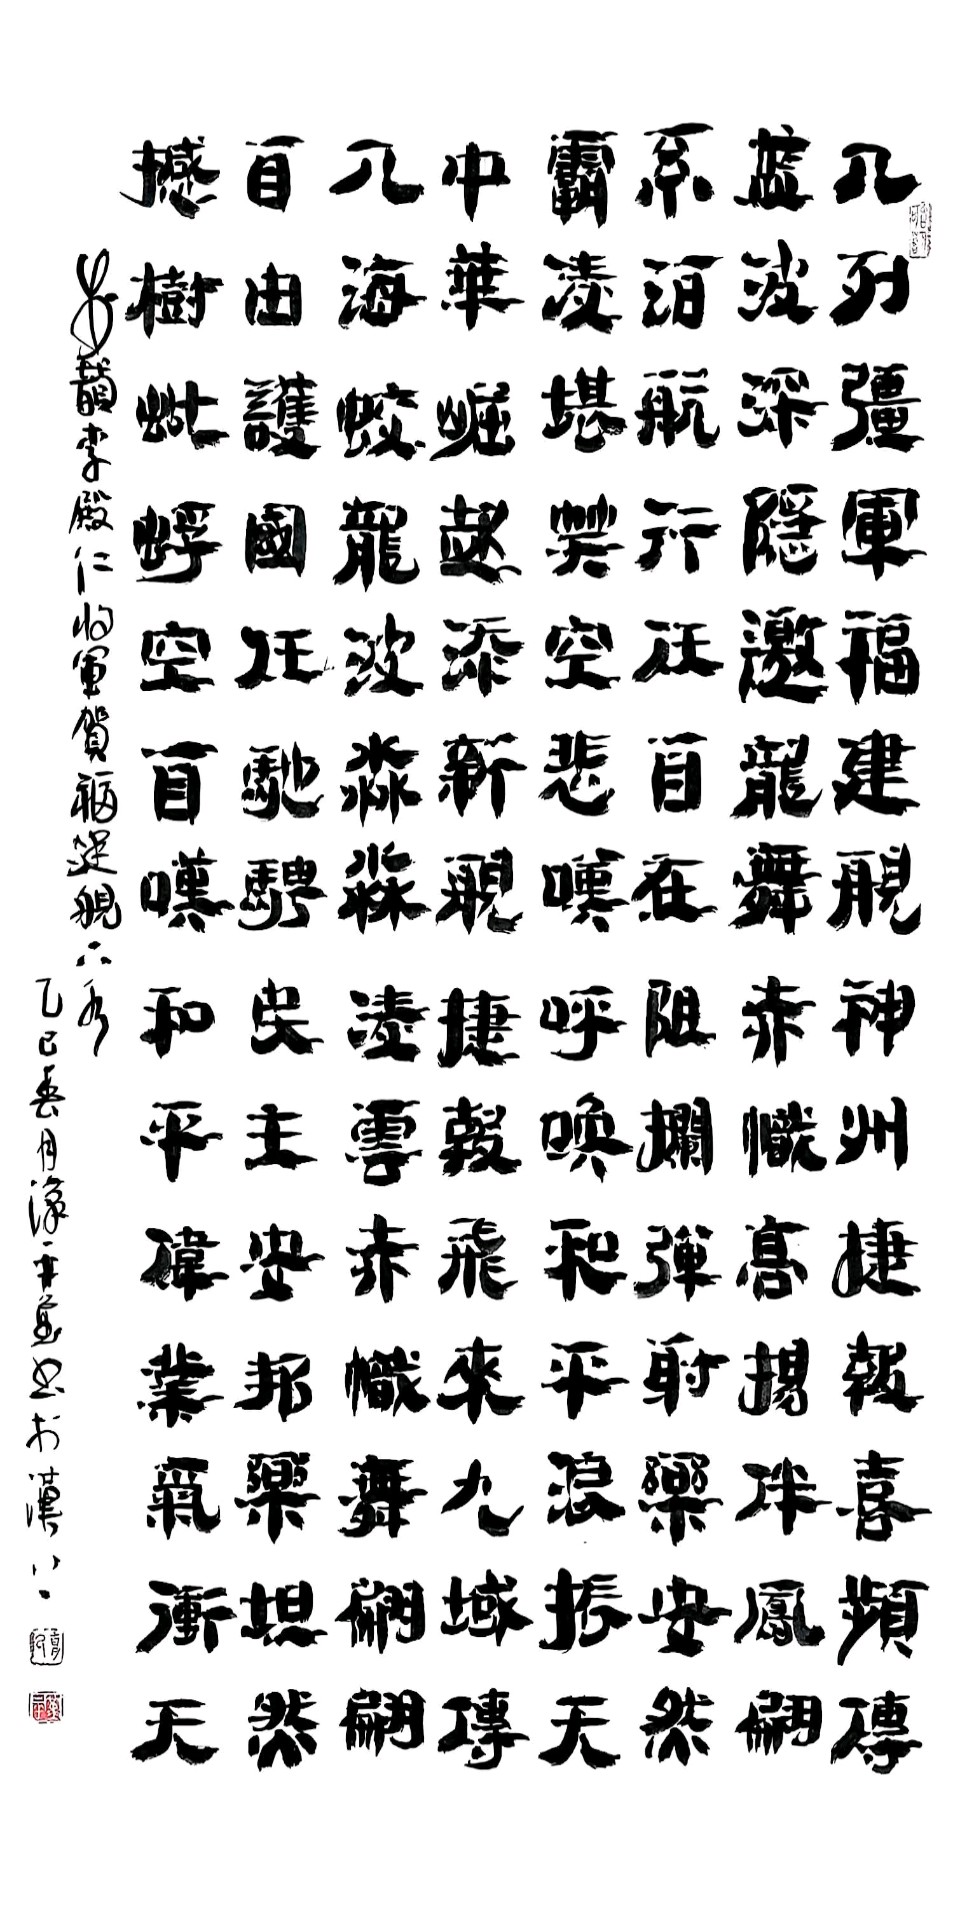 入列彊軍福建舰神州捷報喜頻傳
蓝波深隱邀龍舞赤幟高揚伴鳳翩
系泊航行任自在阻攔彈射樂安然
霸凌堪笑空悲嘆呼喚和平浪振天
中華崛起添新舰捷報飛來九域傳
入海蛟龍波淼淼凌雲赤幟舞翩翩
自由護國任馳騁主安邦樂坦然
撼樹蚍蜉空自嘆和平偉業氣衝天
步韻李殿仁将軍賀福建舰下水
乙巳春月书於漢